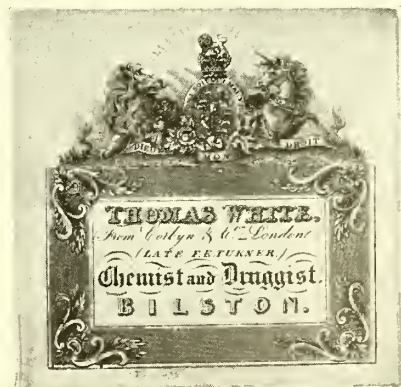 DIEU ET MON DROIT
THOMAS WHITE,
From Corbyn & Co. London
(LATE F.E. TURNER.)
Chemist and Druggist.
BILSTON.